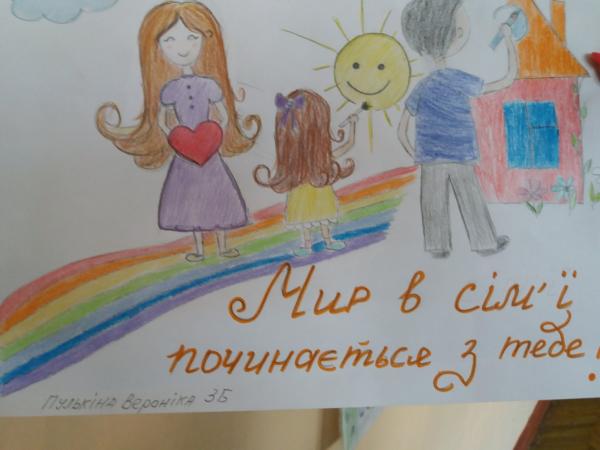 Мир в сім'ї
починається з тебе!
Пулькіна Вероніка 3Б